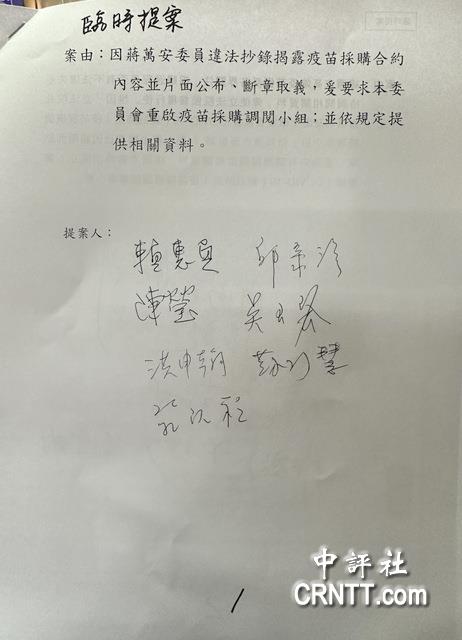 臨時提案
案由：因蔣萬安委員違法抄錄揭露疫苗採購合約
內容並片面公布、斷章取義，爰要求本委
員會重啟疫苗採購調閱小組；並依規定提
供相關資料。
提案人：
賴惠員 邱泰源
陳瑩 吳玉琴
洪申翰 蘇巧慧
程
1
中評社
CRNTT.com